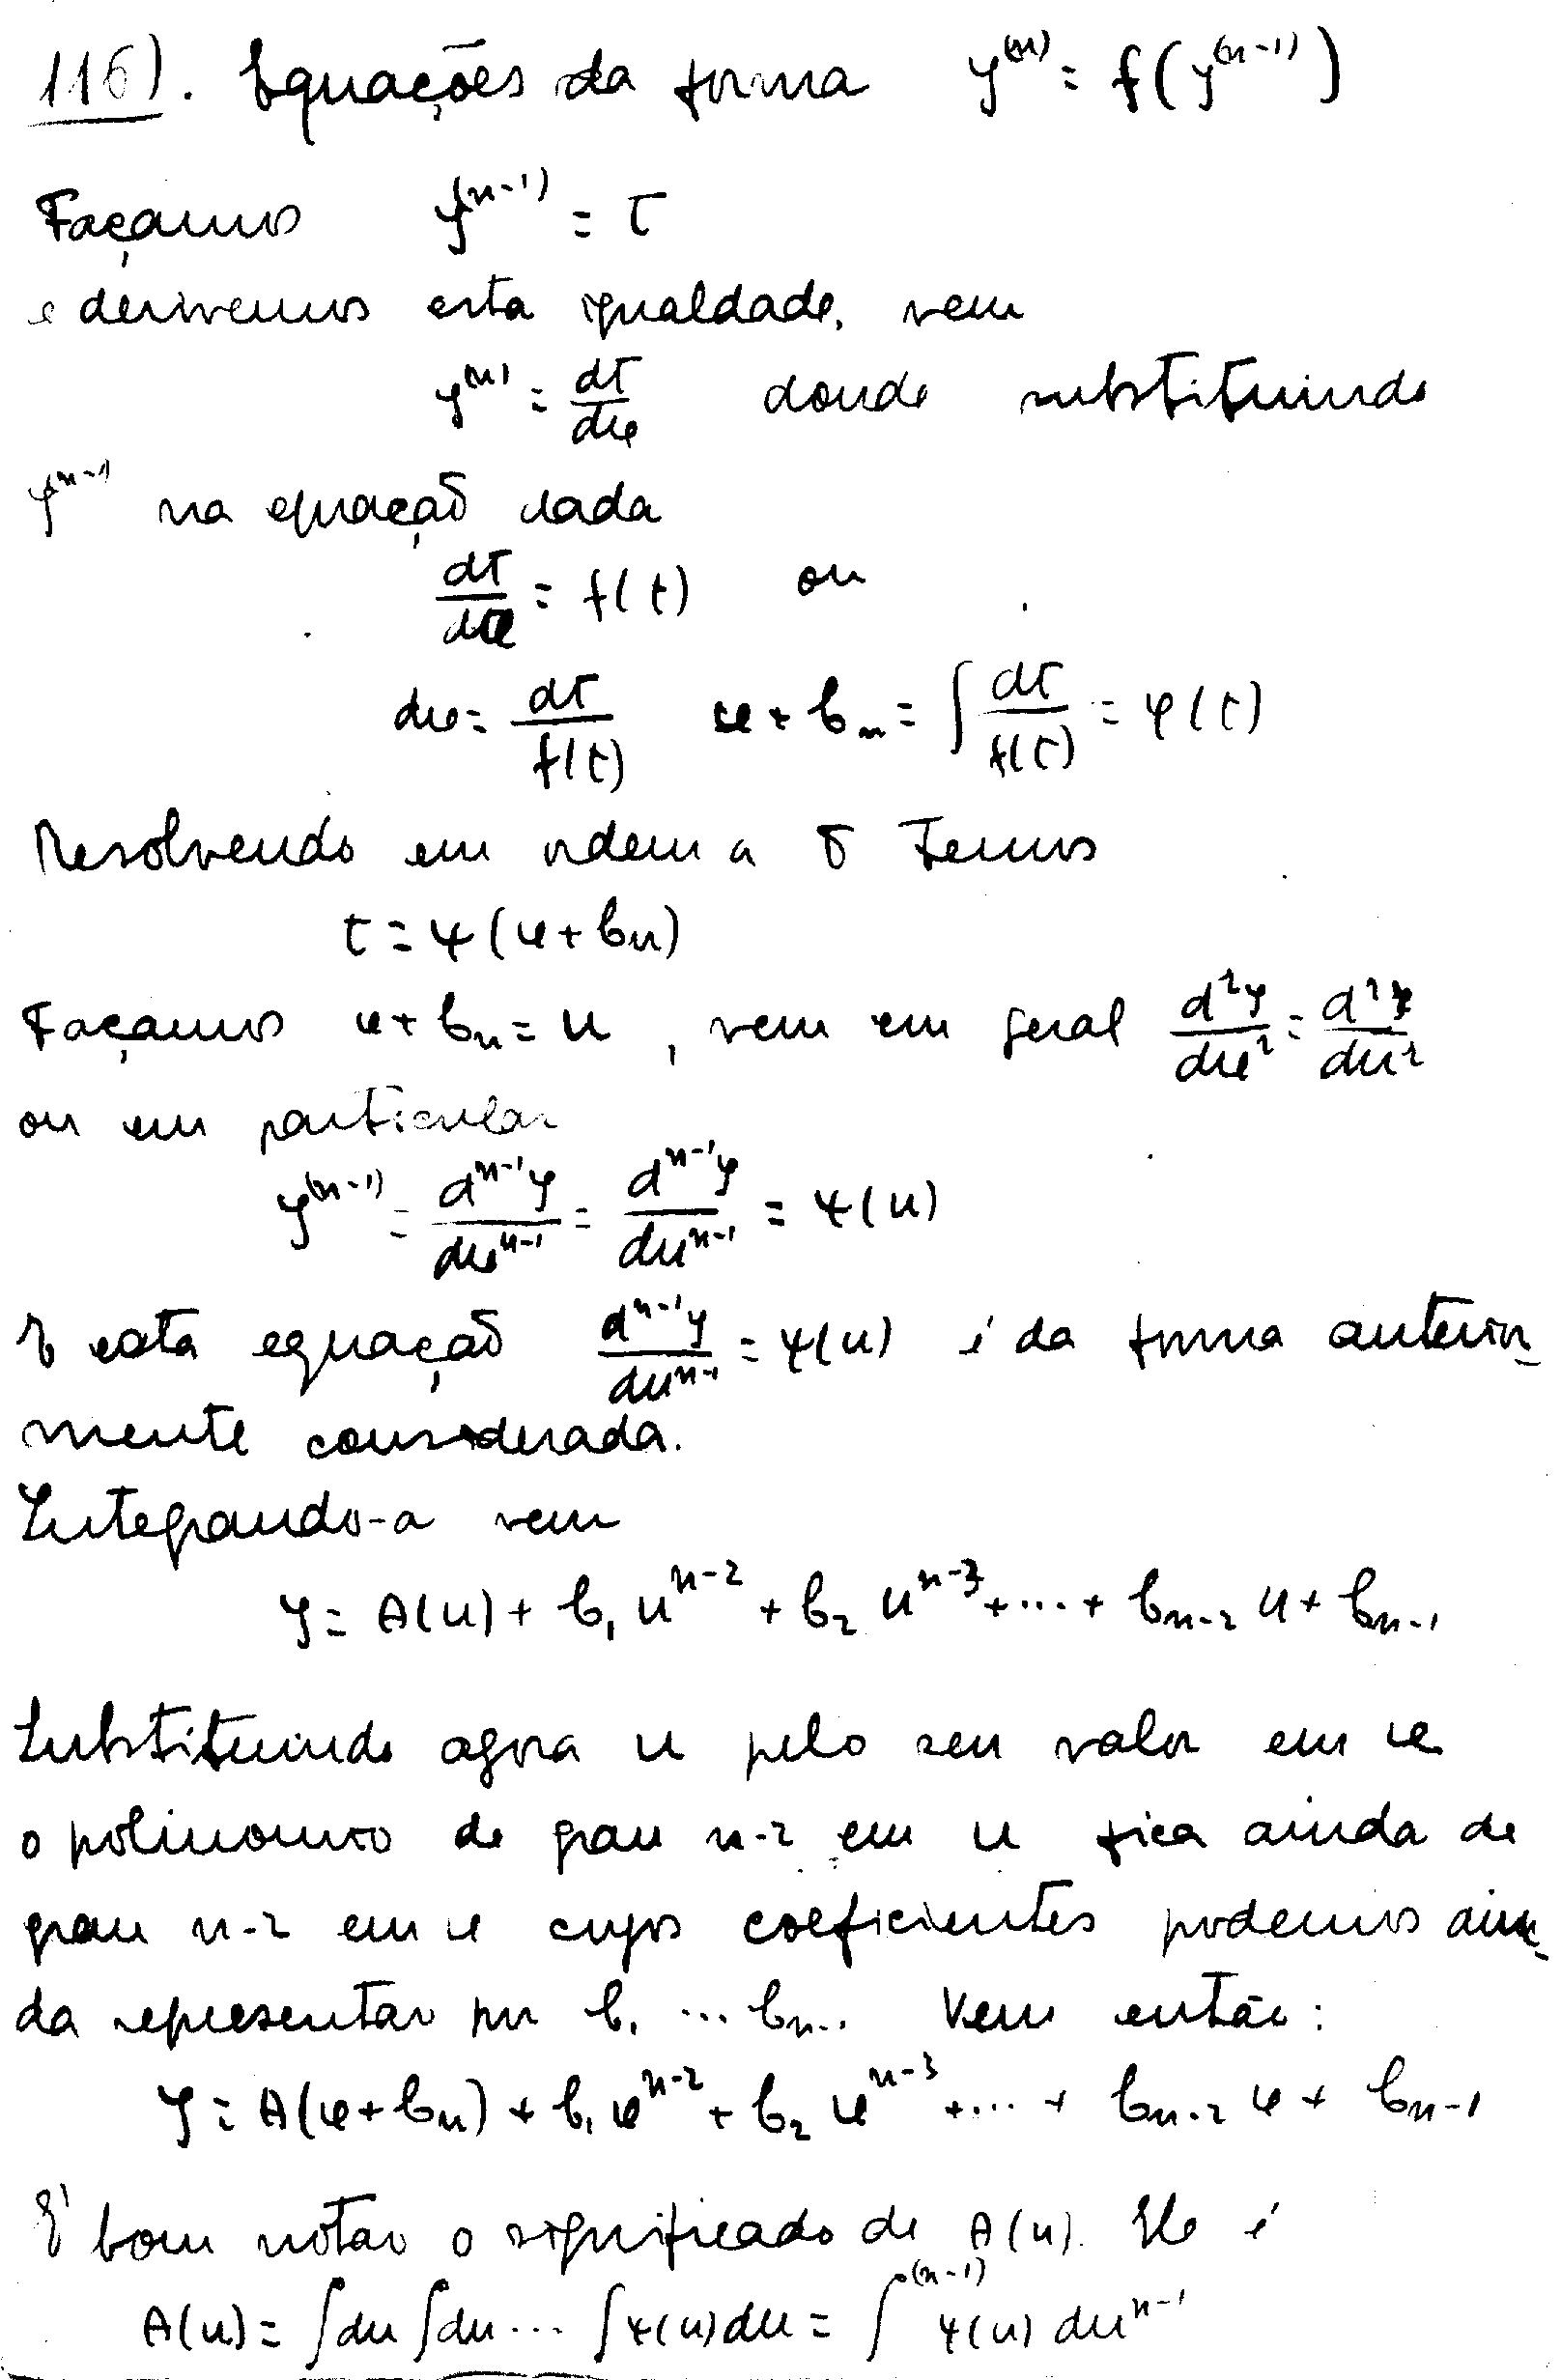 116). Equações da forma y^(n) = f(y^(n-1))
Façamos y^(n-1) = t
e derivemos esta igualdade, vem
y^(n) = dt/dx donde substituindo
y^n-1 na equação dada
dt/dx = f(t) ou
dx = dt/f(t) x + b_n = ∫ dt/f(t) = φ(t)
Resolvendo em ordem a t temos
t = ψ(x + b_n)
Façamos x + b_n = u, vem em geral d²y/dx² = d²y/du²
ou em particular
y^(n-1) = d^n-1 y/dx^n-1 = d^n-1 y/du^n-1 = ψ(u)
E esta equação d^n-1 y/du^n-1 = ψ(u) é da forma anterior-
mente considerada.
Integrando-a vem
y = A(u) + b_1 u^n-2 + b_2 u^n-3 + ... + b_n-2 u + b_n-1
Substituindo agora u pelo seu valor em x
o polinomio de grau n-2 em u fica ainda de
grau n-2 em x cujos coeficientes podemos ain-
da representar por b_1 ... b_n-1. Vem então:
y = A(x + b_n) + b_1 x^n-2 + b_2 x^n-3 + ... + b_n-2 x + b_n-1
É bom notar o significado de A(u). Ele é
A(u) = ∫du ∫du ... ∫ψ(u)du = ∫^(n-1) ψ(u) du^n-1